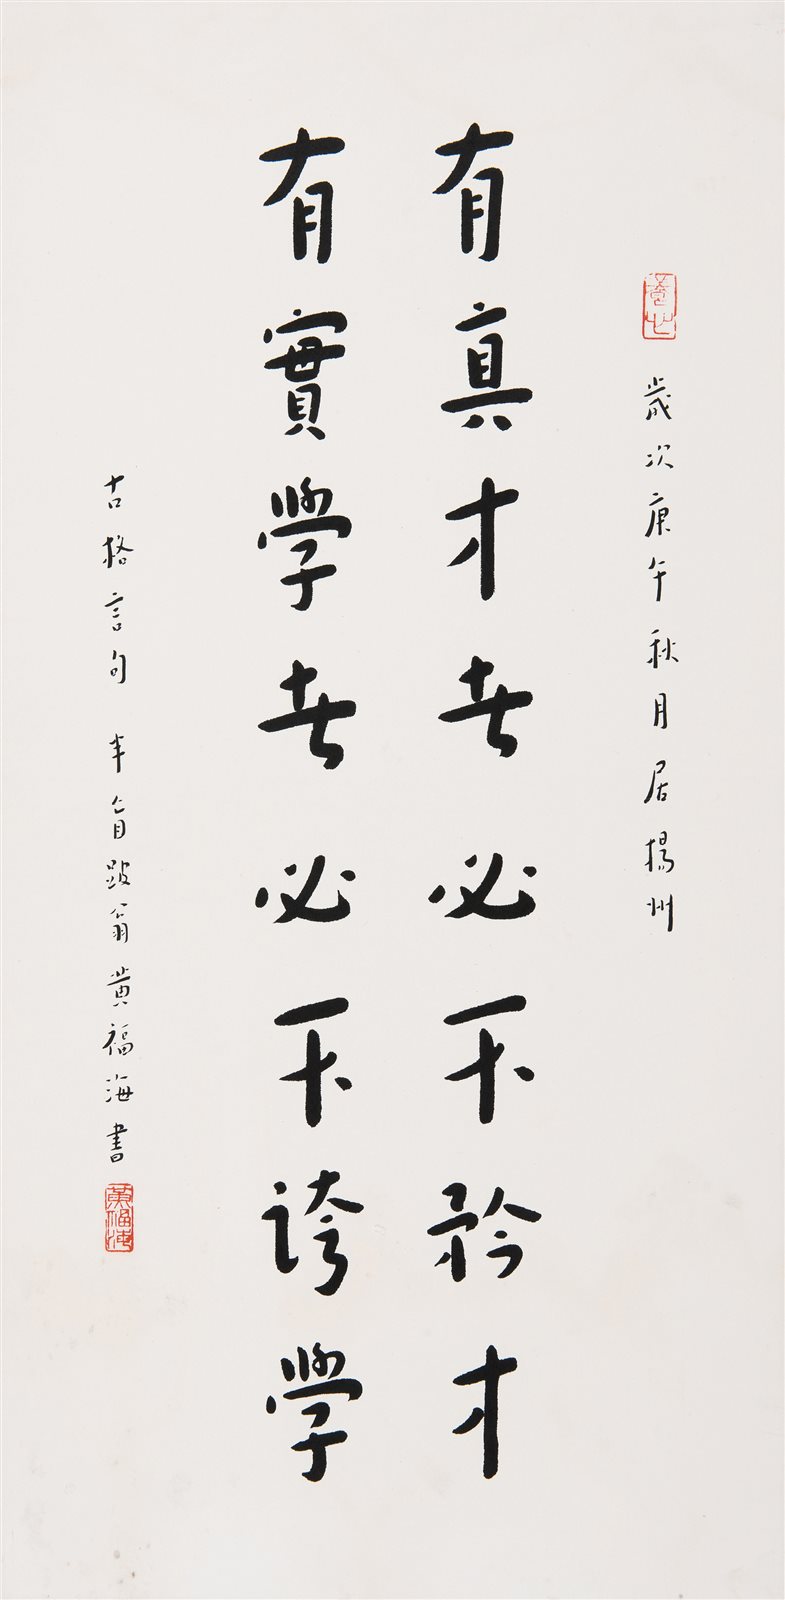 歲次庚午秋月居揚州
有真才者必不矜才
有實學者必不誇學
古格言句 半盲跛翁黃福海書
黃福海